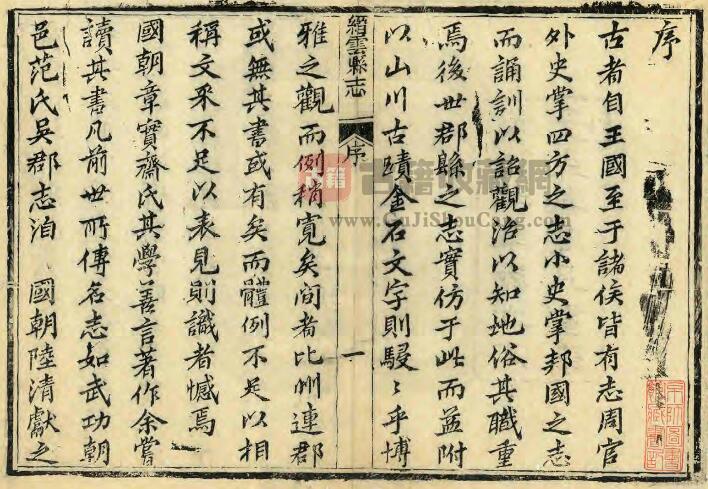 序
古者自王國至于諸侯皆有志周官
外史掌四方之志小史掌邦國之志
而誦訓以詔觀治以知地俗其職重
焉後世郡縣之志實仿于此而益附
以山川古蹟金石文字則駸〻乎博
縉雲縣志
序
一
雅之觀而例稍寬矣間者比州連郡
或無其書或有矣而體例不足以相
稱文采不足以表見則識者憾焉
國朝章實齋氏其學善言著作余嘗
讀其書凡前世所傳名志如武功朝
邑范氏吳郡志洎 國朝陸清獻之
古籍
古籍收藏網
www.GuJiShouCang.com